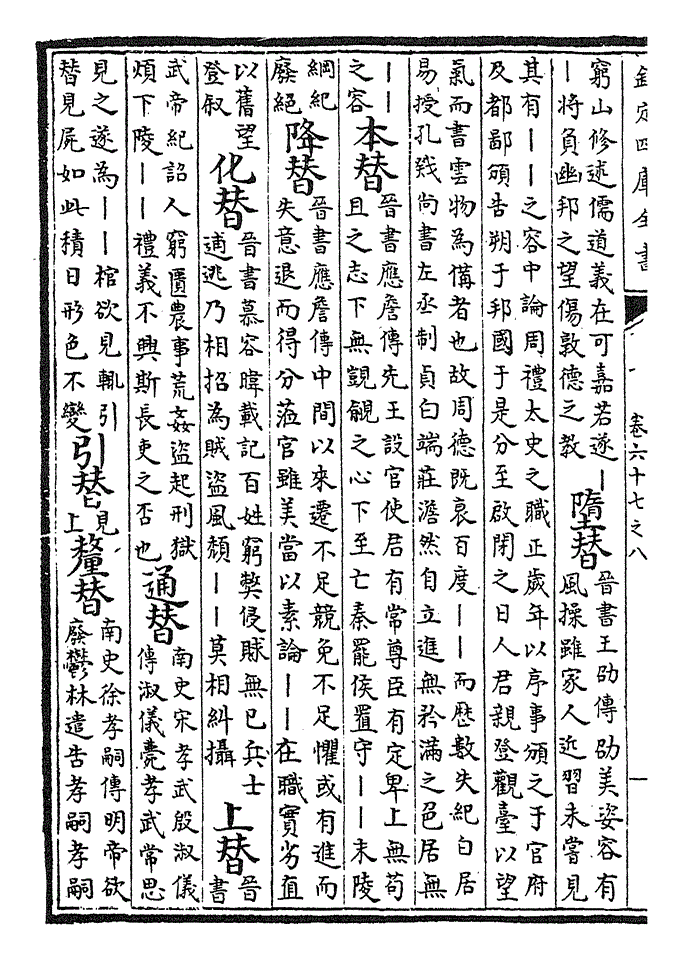 欽定四庫全書 卷六十七之八 一
窮山修述儒道義在可嘉若遂丨
丨將負幽邦之望傷敦德之教
墮替
晉書王劭傳劭美姿容有
風操雖家人近習未嘗見
其有丨丨之容中論周禮太史之職正歲年以序事頒之于官府
及都鄙頒告朔于邦國于是分至啟閉之日人君親登觀臺以望
氣而書雲物為備者也故周德既衰百度丨丨而歷數失紀白居
易授孔戣尚書左丞制貞白端莊澹然自立進無矜滿之色居無
丨丨
之容
本替
晉書應詹傳先王設官使君有常尊臣有定卑上無苟
且之志下無覬覦之心下至亡秦罷侯置守丨丨末陵
綱紀
廢絕
降替
晉書應詹傳中間以來遷不足競免不足懼或有進而
失意退而得分蒞官雖美當以素論丨丨在職實劣直
以舊望
登叙
化替
晉書慕容暐載記百姓窮弊侵賕無已兵士
逋逃乃相招為賊盜風頹丨丨莫相糾攝
上替
晉
書
武帝紀詔人窮匱農事荒姦盜起刑獄
煩下陵丨丨禮義不興斯長吏之否也
通替
南史宋孝武殷淑儀
傳淑儀薨孝武常思
見之遂為丨丨棺欲見輒引
替見屍如此積日形色不變
引替
見
上
釐替
南史徐孝嗣傳明帝欲
廢鬱林遣告孝嗣孝嗣